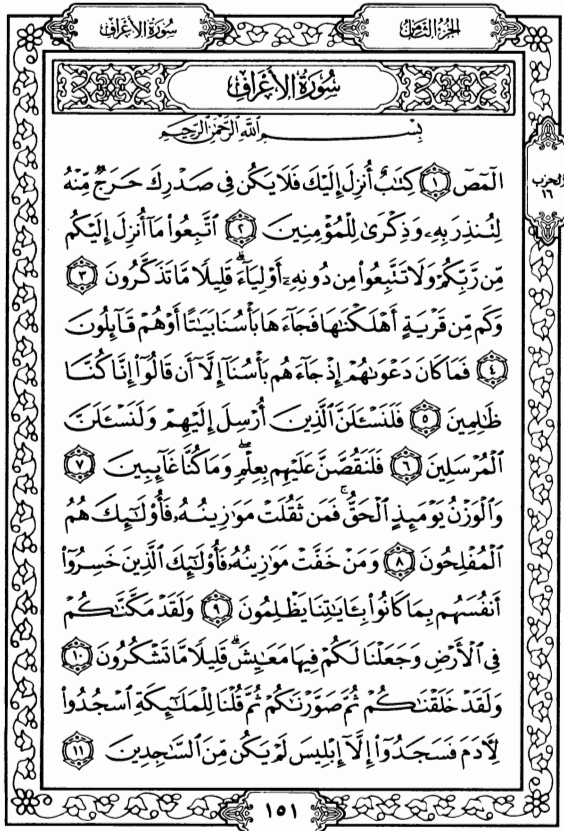 سُورَةُ الأَعۡرَافِ
الجُزۡءُ الثَّامِنُ
سُورَةُ الأَعۡرَافِ
بِسۡمِ ٱللَّهِ ٱلرَّحۡمَٰنِ ٱلرَّحِيمِ
الٓمٓصٓ ١ كِتَٰبٌ أُنزِلَ إِلَيۡكَ فَلَا يَكُن فِي صَدۡرِكَ حَرَجٞ مِّنۡهُ
لِتُنذِرَ بِهِۦ وَذِكۡرَىٰ لِلۡمُؤۡمِنِينَ ٢ ٱتَّبِعُواْ مَآ أُنزِلَ إِلَيۡكُم
مِّن رَّبِّكُمۡ وَلَا تَتَّبِعُواْ مِن دُونِهِۦٓ أَوۡلِيَآءَۗ قَلِيلٗا مَّا تَذَكَّرُونَ ٣
وَكَم مِّن قَرۡيَةٍ أَهۡلَكۡنَٰهَا فَجَآءَهَا بَأۡسُنَا بَيَٰتًا أَوۡ هُمۡ قَآئِلُونَ
٤ فَمَا كَانَ دَعۡوَىٰهُمۡ إِذۡ جَآءَهُم بَأۡسُنَآ إِلَّآ أَن قَالُوٓاْ إِنَّا كُنَّا
ظَٰلِمِينَ ٥ فَلَنَسۡـَٔلَنَّ ٱلَّذِينَ أُرۡسِلَ إِلَيۡهِمۡ وَلَنَسۡـَٔلَنَّ
ٱلۡمُرۡسَلِينَ ٦ فَلَنَقُصَّنَّ عَلَيۡهِم بِعِلۡمٖۖ وَمَا كُنَّا غَآئِبِينَ ٧
وَٱلۡوَزۡنُ يَوۡمَئِذٍ ٱلۡحَقُّۚ فَمَن ثَقُلَتۡ مَوَٰزِينُهُۥ فَأُوْلَٰٓئِكَ هُمُ
ٱلۡمُفۡلِحُونَ ٨ وَمَنۡ خَفَّتۡ مَوَٰزِينُهُۥ فَأُوْلَٰٓئِكَ ٱلَّذِينَ خَسِرُوٓاْ
أَنفُسَهُم بِمَا كَانُواْ بِـَٔايَٰتِنَا يَظۡلِمُونَ ٩ وَلَقَدۡ مَكَّنَّٰكُمۡ
فِي ٱلۡأَرۡضِ وَجَعَلۡنَا لَكُمۡ فِيهَا مَعَٰيِشَۗ قَلِيلٗا مَّا تَشۡكُرُونَ ١٠
وَلَقَدۡ خَلَقۡنَٰكُمۡ ثُمَّ صَوَّرۡنَٰكُمۡ ثُمَّ قُلۡنَا لِلۡمَلَٰٓئِكَةِ ٱسۡجُدُواْ
لِأٓدَمَ فَسَجَدُوٓاْ إِلَّآ إِبۡلِيسَ لَمۡ يَكُن مِّنَ ٱلسَّٰجِدِينَ ١١
الحِزۡب
١٦
١٥١